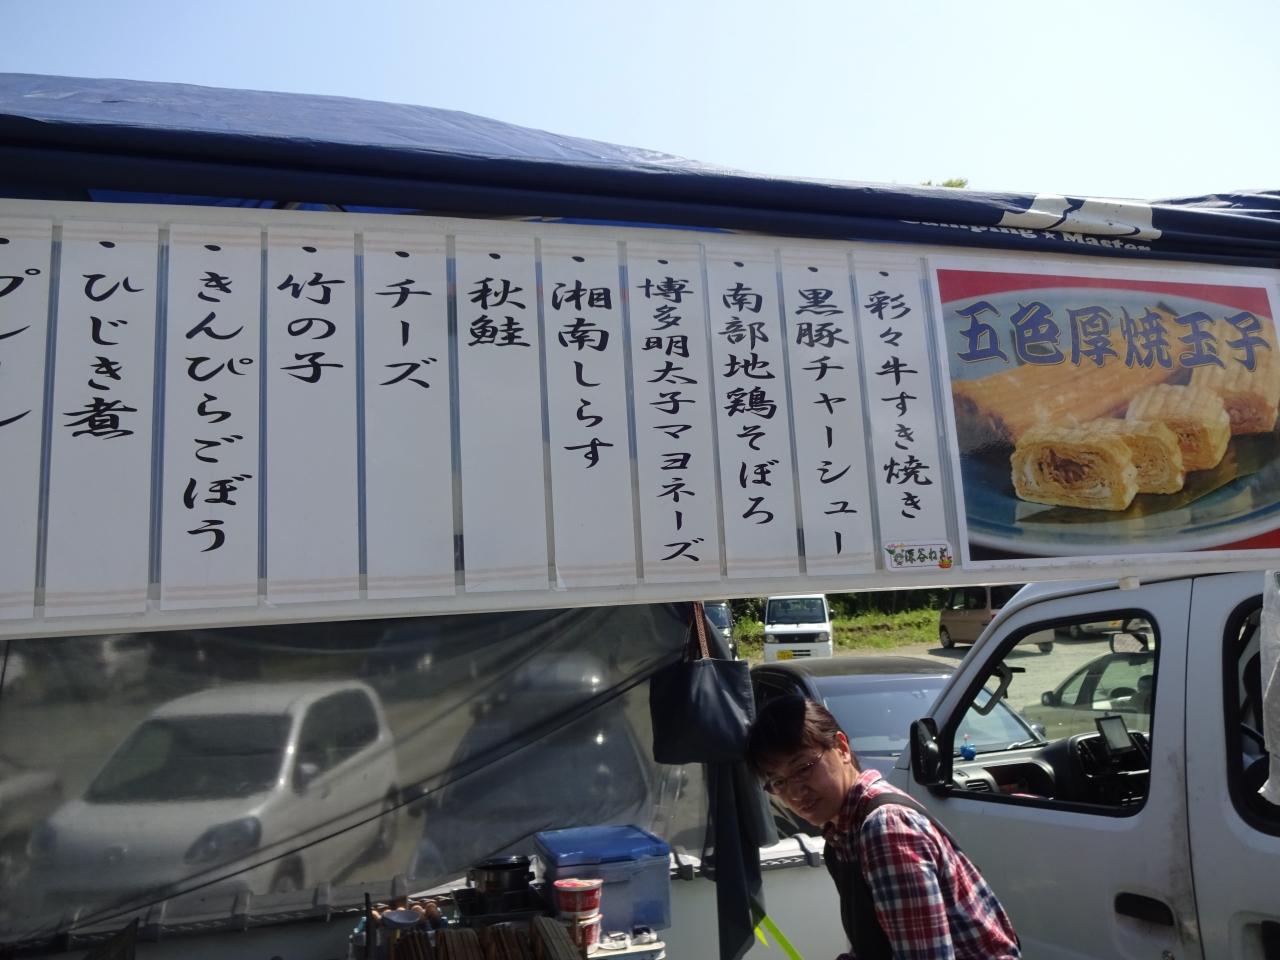 Camping★Master
五色厚焼玉子
・彩々牛すき焼き
深谷ねぎ
・黒豚チャーシュー
・南部地鶏そぼろ
・博多明太子マヨネーズ
・湘南しらす
・秋鮭
・チーズ
・竹の子
・きんぴらごぼう
・ひじき煮